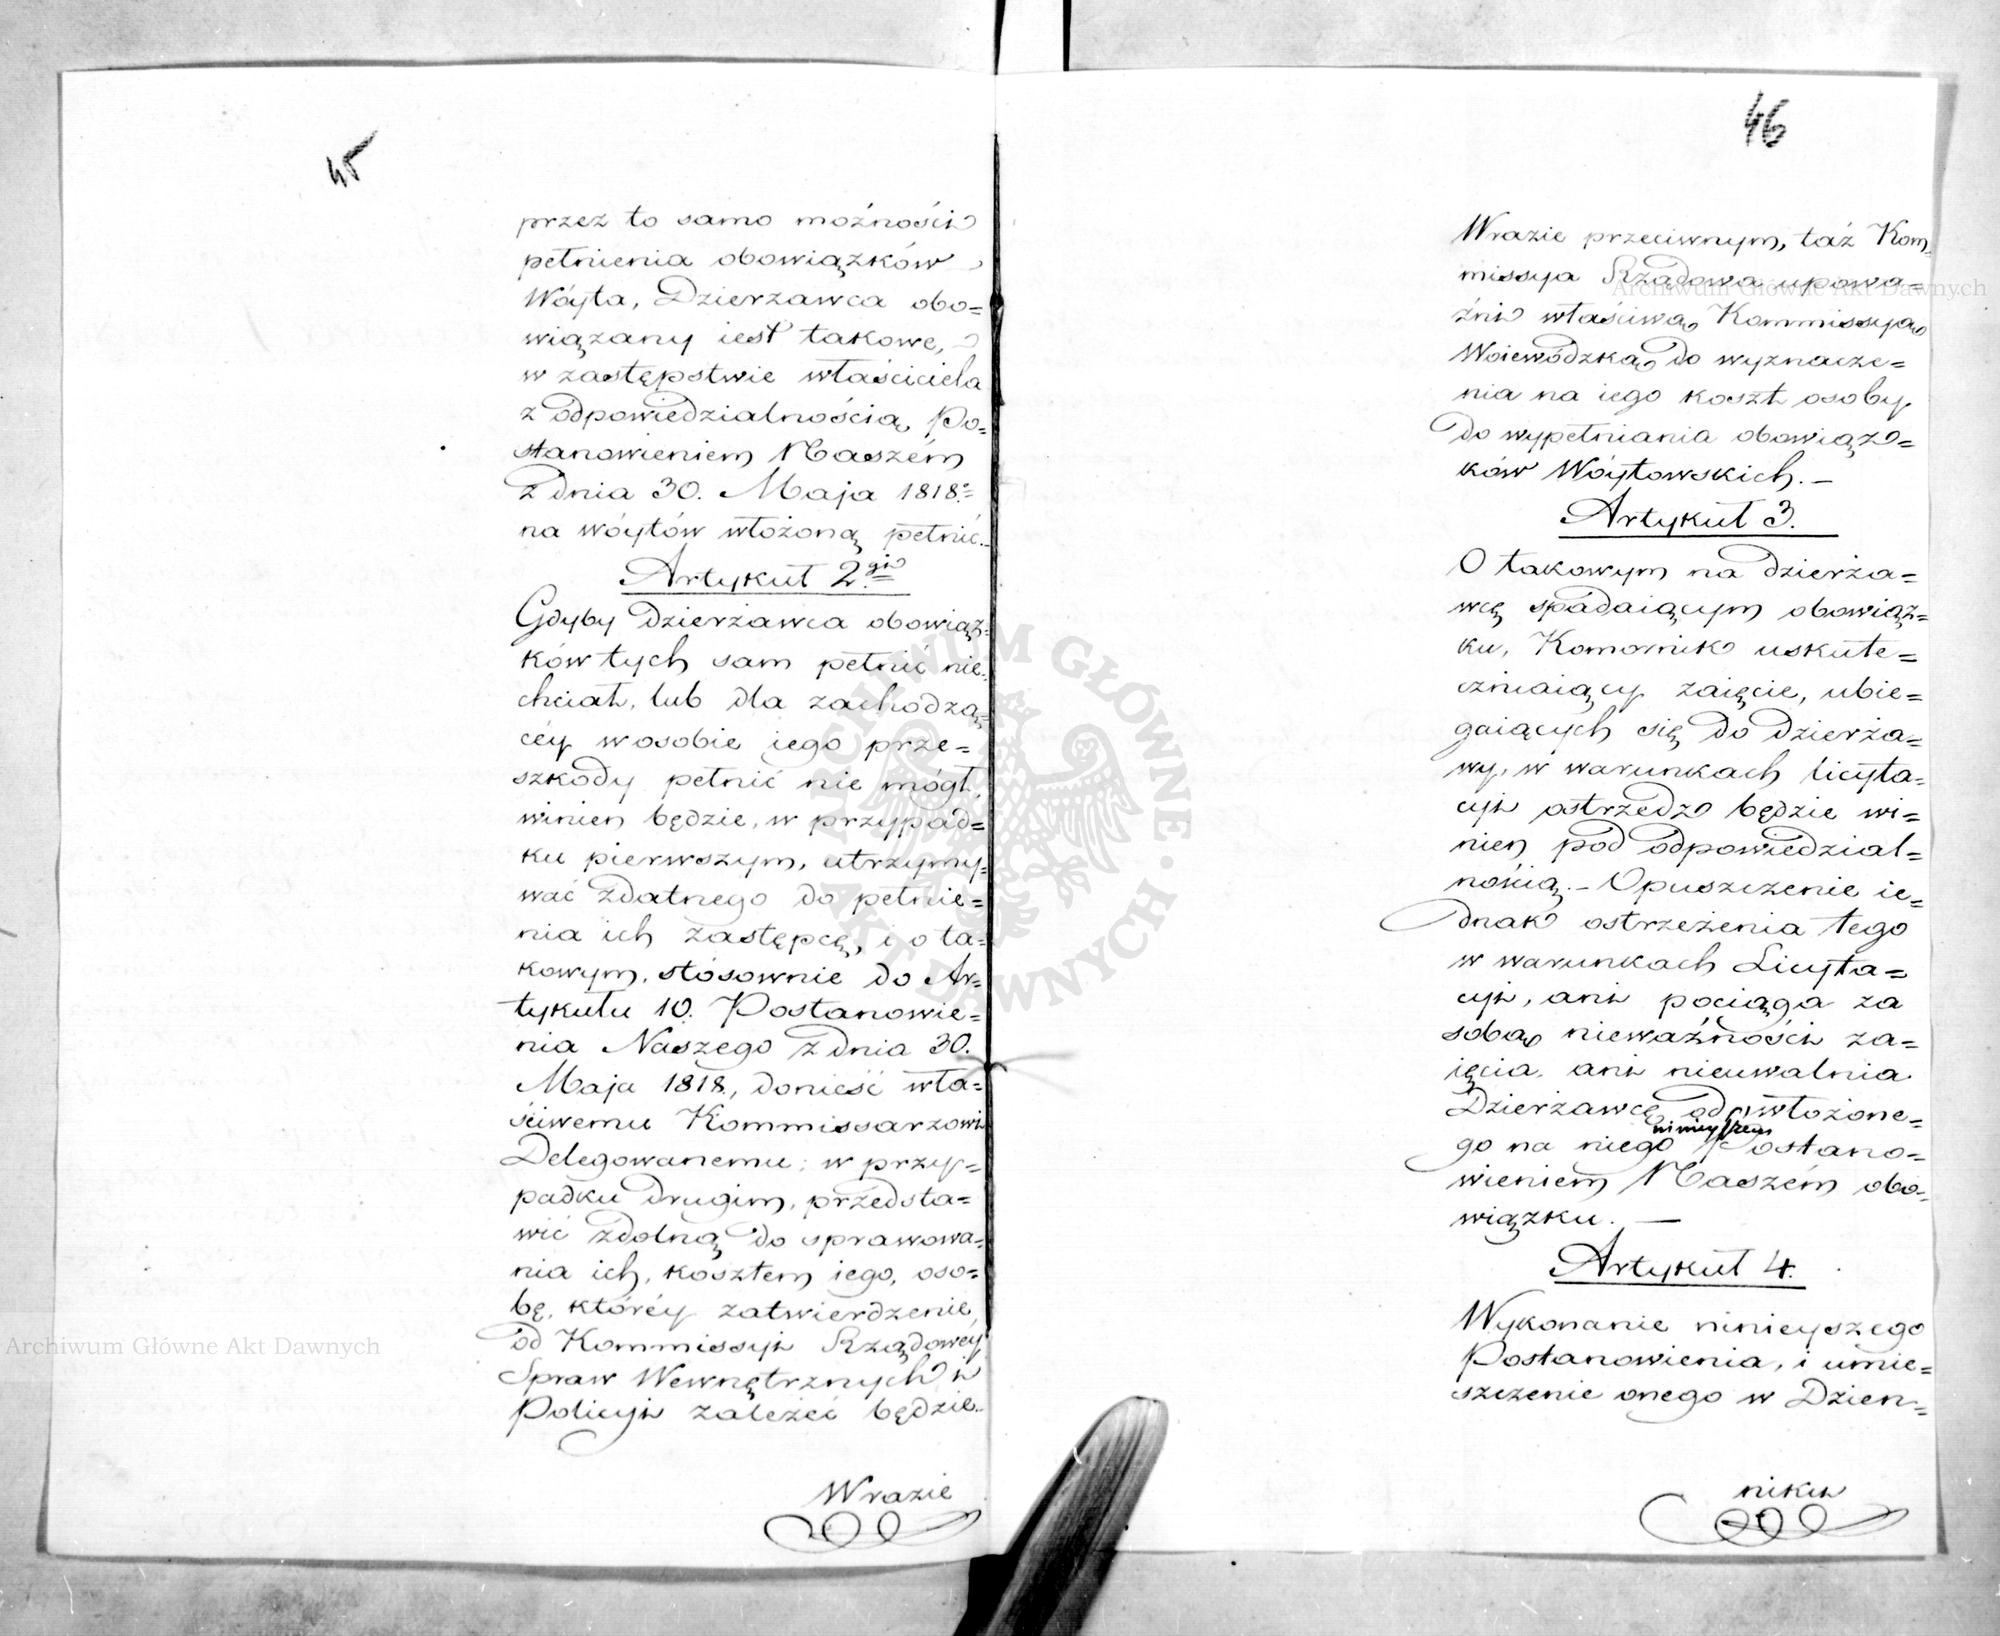 45
przez to samo możności
pełnienia obowiązków
Wóyta, Dzierzawca obo=
wiązany iest takowe,
w zastępstwie właściciela
z odpowiedzialnością, Po=
stanowieniem Naszém
z dnia 30. Maja 1818.
na wóytów włożoną pełnić.
Artykuł 2.gi
Gdyby Dzierżawca obowiąz=
ków tych sam pełnić nie=
chciał, lub dla zachodzą=
céy w osobie iego prze=
szkody pełnić nie mógł,
winien będzie, w przypad=
ku pierwszym, utrzymy=
wać zdatnego do pełnie=
nia ich zastępcę, i o ta=
kowym, stósownie do Ar=
tykułu 10. Postanowie=
nia Naszego z dnia 30.
Maja 1818., donieść wła=
ściwemu Kommissarzowi
Delegowanemu; w przy=
padku drugim, przedsta=
wić zdolną do sprawowa=
nia ich, kosztem iego, oso=
bę, któréy zatwierdzenie,
od Kommissyi Rządowey
Spraw Wewnętrznych i
Policyi zależeć będzie.
Wrazie
46
Wrazie przeciwnym, taż Kom
missya Rządowa upowa=
żni właściwą Kommissyą
Woiewódzką do wyznacze=
nia na iego koszt osoby
do wypełniania obowiąz=
ków Wóytowskich. —
Artykuł 3.
O takowym na dzierża=
wcę spadaiącym obowiąz=
ku, Komornik uskute=
czniaiący zaięcie, ubie=
gaiących się do dzierża=
wy, w warunkach licyta=
cyi ostrzedz będzie wi=
nien pod odpowiedzial=
nością. — Opuszczenie ie=
dnak ostrzeżenia tego
w warunkach Licyta=
cyi, ani pociąga za
sobą nieważności za=
ięcia, ani nieuwalnia
Dzierżawcę od włożone=
ninieyszem
go na niego Postano=
wieniem Naszém obo=
wiązku. —
Artykuł 4.
Wykonanie ninieyszego
Postanowienia, i umie=
szczenie onego w Dzien=
niku
Archiwum Główne Akt Dawnych
Archiwum Główne Akt Dawnych
ARCHIWUM GŁÓWNE · AKT DAWNYCH ·